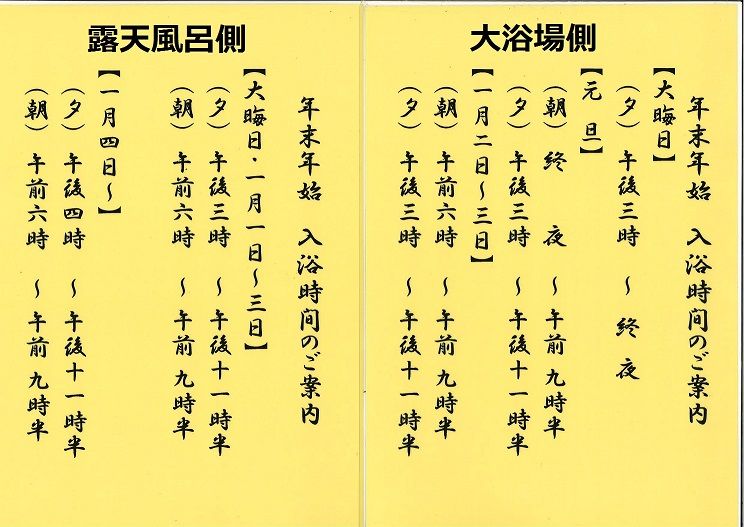 大浴場側
年末年始 入浴時間のご案内
【大晦日】
(夕) 午後三時 ~ 終 夜
【元 旦】
(朝) 終 夜 ~ 午前九時半
(夕) 午後三時 ~ 午後十一時半
【一月二日~三日】
(朝) 午前六時 ~ 午前九時半
(夕) 午後三時 ~ 午後十一時半
露天風呂側
年末年始 入浴時間のご案内
【大晦日・一月一日~三日】
(夕) 午後三時 ~ 午後十一時半
(朝) 午前六時 ~ 午前九時半
【一月四日~】
(夕) 午後四時 ~ 午後十一時半
(朝) 午前六時 ~ 午前九時半